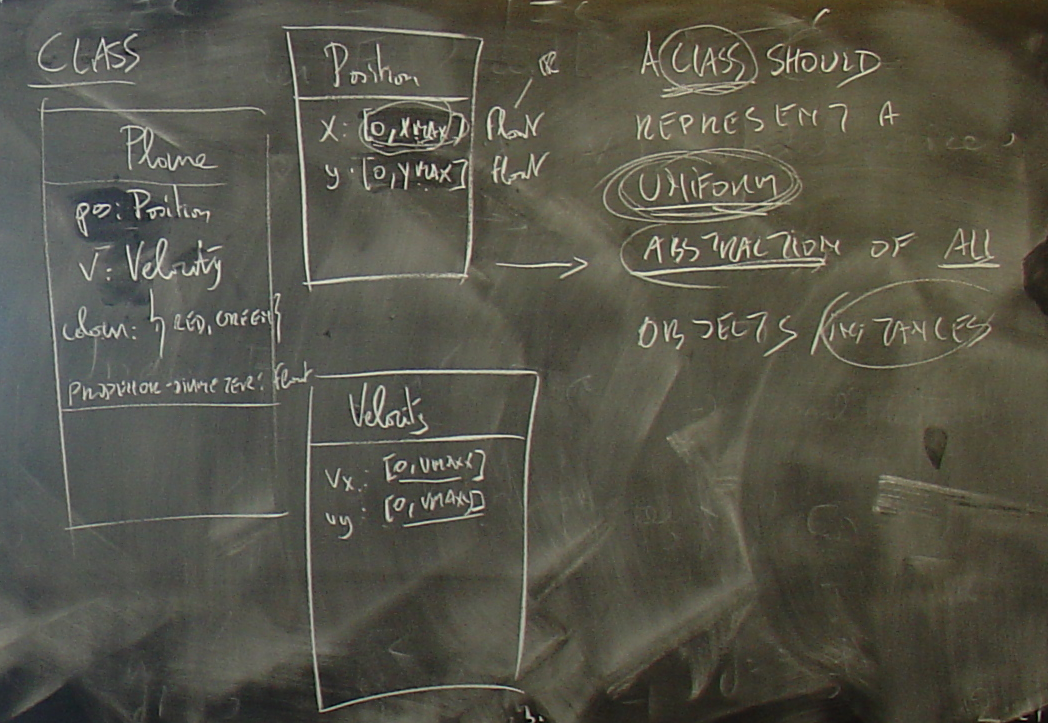 CLASS
Plane
pos: Position
V: Velocity
colour: { RED, GREEN}
PROPELLOR-DIAMETER: float
Position
ℝ
X: [0, XMAX] float
y: [0, YMAX] float
Velocity
Vx: [0, VMAXX]
vy: [0, VMAXY]
A CLASS SHOULD
REPRESENT A
UNIFORM
ABSTRACTION OF ALL
OBJECTS INSTANCES